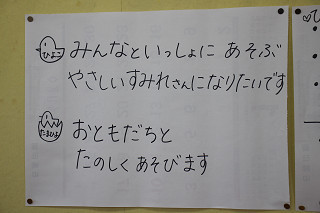 ひよこ
みんなといっしょに あそぶ
やさしいすみれさんになりたいです
たまひよ
おともだちと
たのしくあそびます